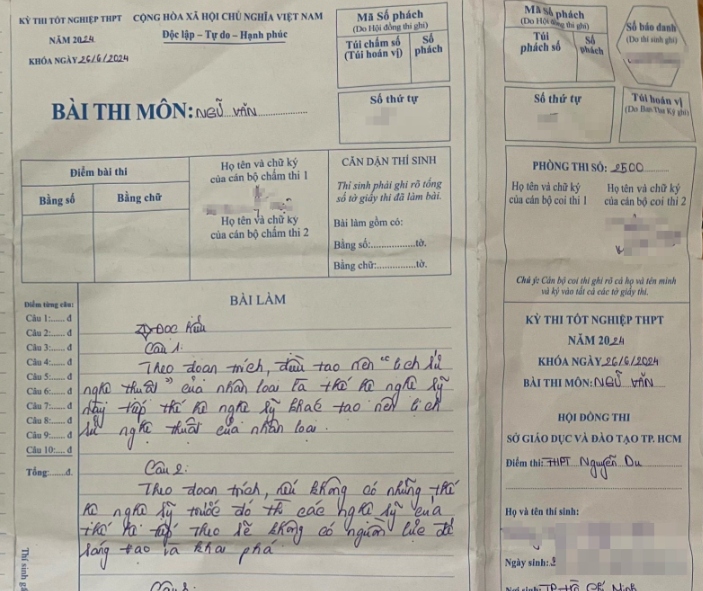 KỲ THI TỐT NGHIỆP THPT
NĂM 2024
KHÓA NGÀY 26/6/2024
CỘNG HÒA XÃ HỘI CHỦ NGHĨA VIỆT NAM
Độc lập – Tự do – Hạnh phúc
BÀI THI MÔN: NGỮ VĂN
Mã Số phách
(Do Hội đồng thi ghi)
Túi chấm số
(Túi hoán vị)
Số
phách
Số thứ tự
Điểm bài thi
Bằng số
Bằng chữ
Họ tên và chữ ký
của cán bộ chấm thi 1
Họ tên và chữ ký
của cán bộ chấm thi 2
CĂN DẶN THÍ SINH
Thí sinh phải ghi rõ tổng
số tờ giấy thi đã làm bài.
Bài làm gồm có:
Bằng số:................tờ.
Bằng chữ:..............tờ.
Điểm từng câu:
Câu 1:...... đ
Câu 2:...... đ
Câu 3:...... đ
Câu 4:...... đ
Câu 5:...... đ
Câu 6:...... đ
Câu 7:...... đ
Câu 8:...... đ
Câu 9:...... đ
Câu 10:..... đ
Tổng:......đ.
BÀI LÀM
I) ĐỌC HIỂU
Câu 1:
Theo đoạn trích, điều tạo nên "lịch sử
nghệ thuật" của nhân loại là thế hệ nghệ sỹ
này tiếp thế hệ nghệ sỹ khác tạo nên lịch
sử nghệ thuật của nhân loại.
Câu 2:
Theo đoạn trích, nếu không có những thế
hệ nghệ sỹ trước đó thì các nghệ sỹ của
thế hệ tiếp theo sẽ không có nguồn lực để
sáng tạo và khai phá.
Câu 3:
Thí sinh
Mã Số phách
(Do Hội đồng thi ghi)
Túi
phách số
Số
phách
Số báo danh
(Do thí sinh ghi)
Số thứ tự
Túi hoán vị
(Do Ban Thư Ký ghi)
PHÒNG THI SỐ: 2500
Họ tên và chữ ký
của cán bộ coi thi 1
Họ tên và chữ ký
của cán bộ coi thi 2
Chú ý: Cán bộ coi thi ghi rõ cả họ và tên mình
và ký vào tất cả các tờ giấy thi.
KỲ THI TỐT NGHIỆP THPT
NĂM 2024
KHÓA NGÀY 26/6/2024
BÀI THI MÔN: NGỮ VĂN
HỘI ĐỒNG THI
SỞ GIÁO DỤC VÀ ĐÀO TẠO TP. HCM
Điểm thi: THPT Nguyễn Du
Họ và tên thí sinh:
Ngày sinh:
Nơi sinh: TP Hồ Chí Minh